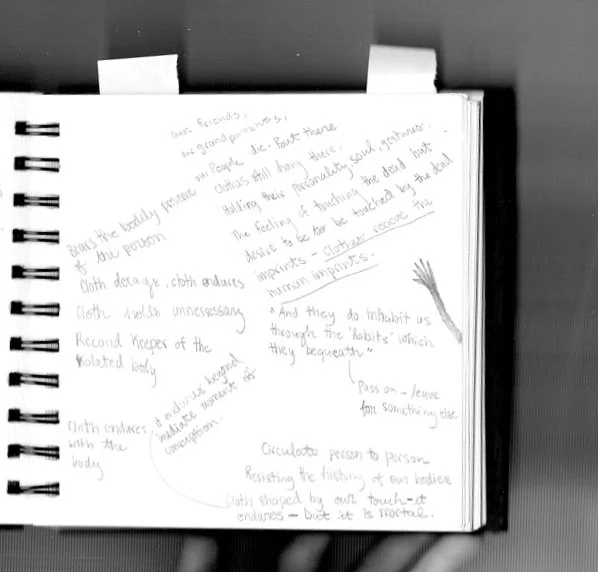 our friends,
our grandparents,
our People die. But there
clothes still hang there.
Holding their personality, soul, gestures.
The feeling of touching the dead but
desire to be to be touched by the dead
imprints - clothes recieve the
human imprints.
Bears the bodily
of the person
Cloth decays, cloth endures
Cloth holds unnessessary
Record keeper of the
isolated body
"And they do inhabit us
through the 'habits' which
they bequeath"
Pass on - leave
for something else
it endures beyond
mediate moments of
conception.
Cloth endures
with the
body
Circulate person to person
Resisting the history of our bodies
cloth shaped by our touch - it
endures - but it is mortal.